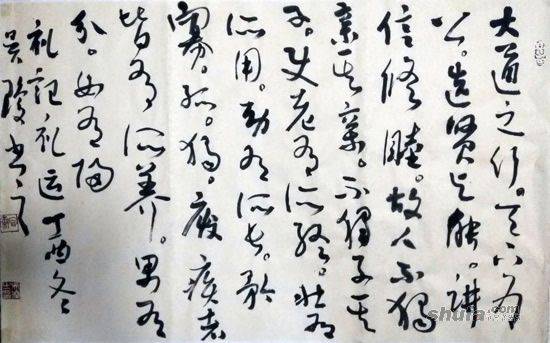 大道之行。天下为
公。选贤与能。讲
信修睦。故人不独
亲其亲。不独子其
子。使老有所终。壮有
所用。幼有所长。矜
寡。孤。独。废疾者
皆有所养。男有
分。女有归
礼记·礼运 丁酉冬
吴陵书
shufa.com